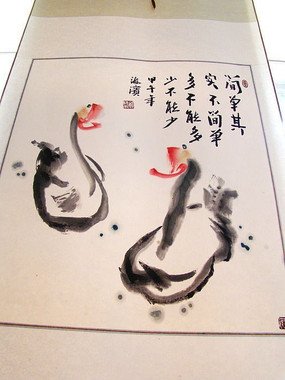 简单其
实不简单
多不能多
少不能少
甲午年
海滨